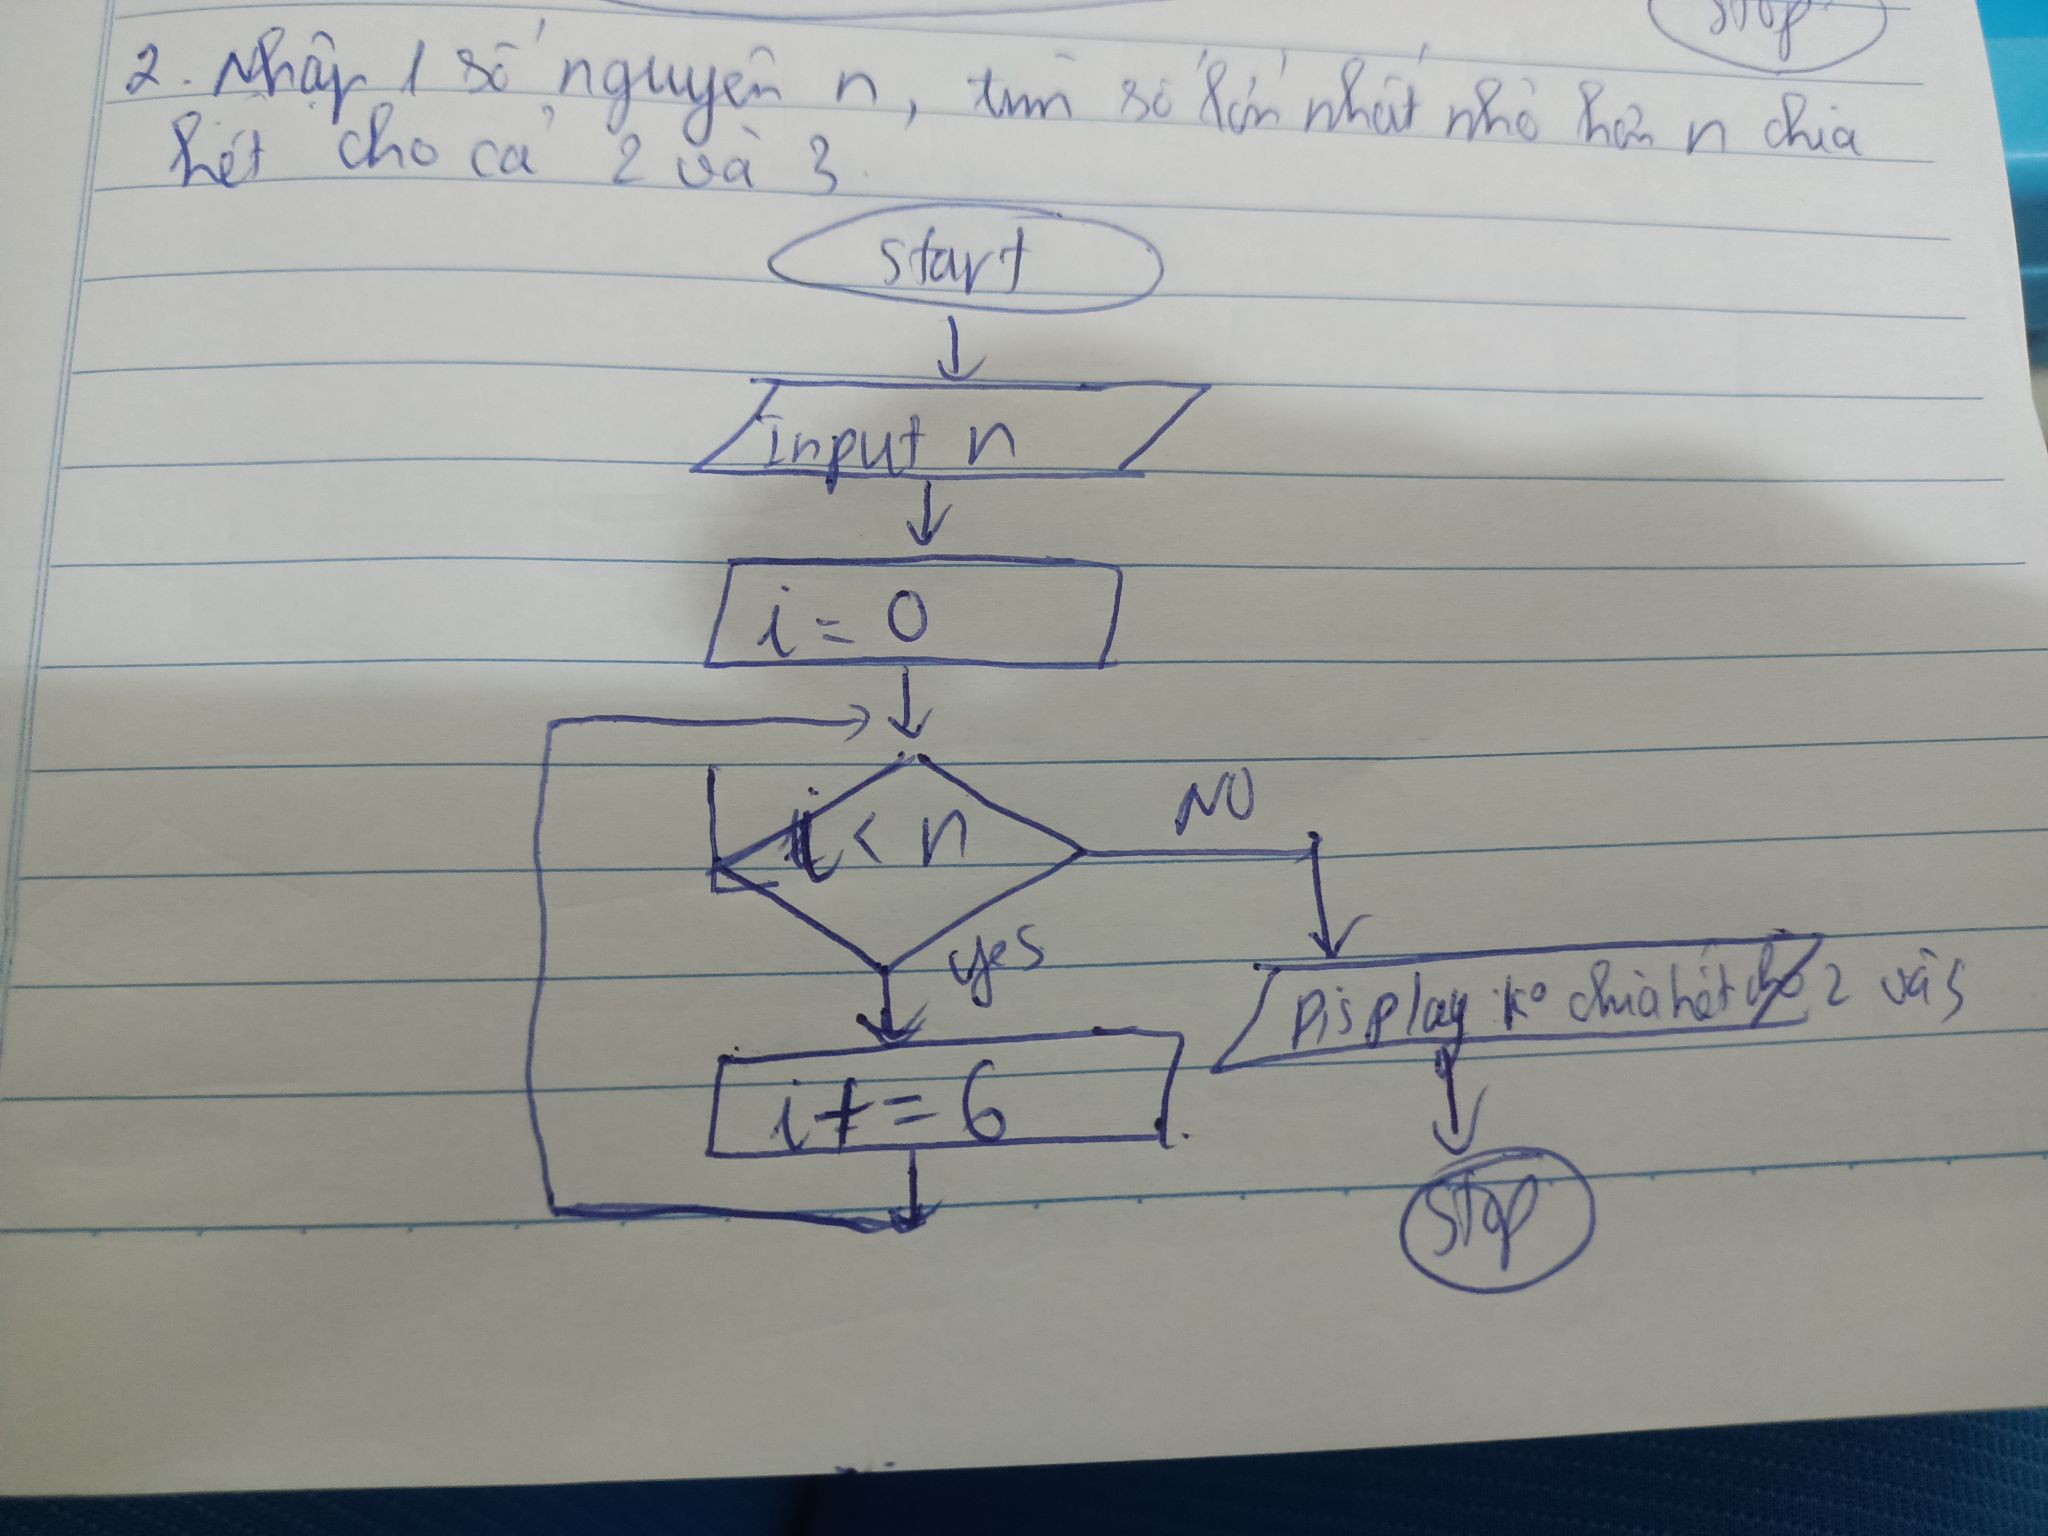 stop
2. Nhập 1 số nguyên n, tìm số lớn nhất nhỏ hơn n chia
hết cho cả 2 và 3
start
Input n
i = 0
i < n
NO
yes
Display: ko chia hết cho 2 và 3
i += 6
stop